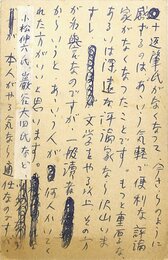 氏が亡くなって、今さらに
感ずるのはあゝいう気軽で便利な評論
家がなくなったことです。もっと重厚な、
あるいは深遠な評論家なら沢山いま
すし、文学をやる以上その方
なのですが、一般読者
からいうと、あゝいう人が何人かいてく
れた方がいゝと思います。
小松伸六氏、巌谷大四氏など
本人がその気なら適任なのです